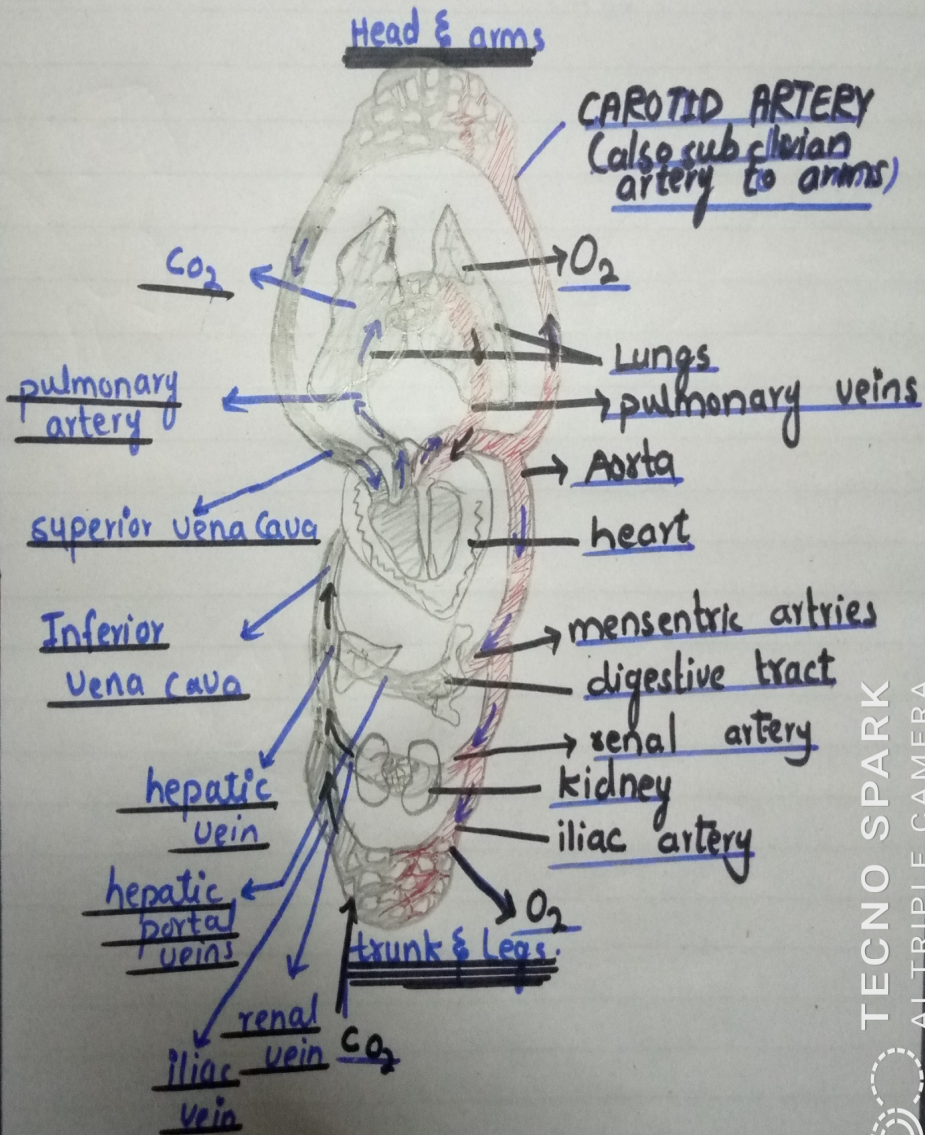 Head & arms
CAROTID ARTERY
(also subclivian
artery to arms)
CO2
O2
Lungs
pulmonary
artery
pulmonary veins
Aorta
superior vena cava
heart
Inferior
vena cava
mensentric artries
digestive tract
renal artery
hepatic
vein
kidney
iliac artery
hepatic
portal
veins
O2
trunk & Legs.
renal
vein
CO2
iliac
vein
TECNO SPARK
AI TRIPLE CAMERA